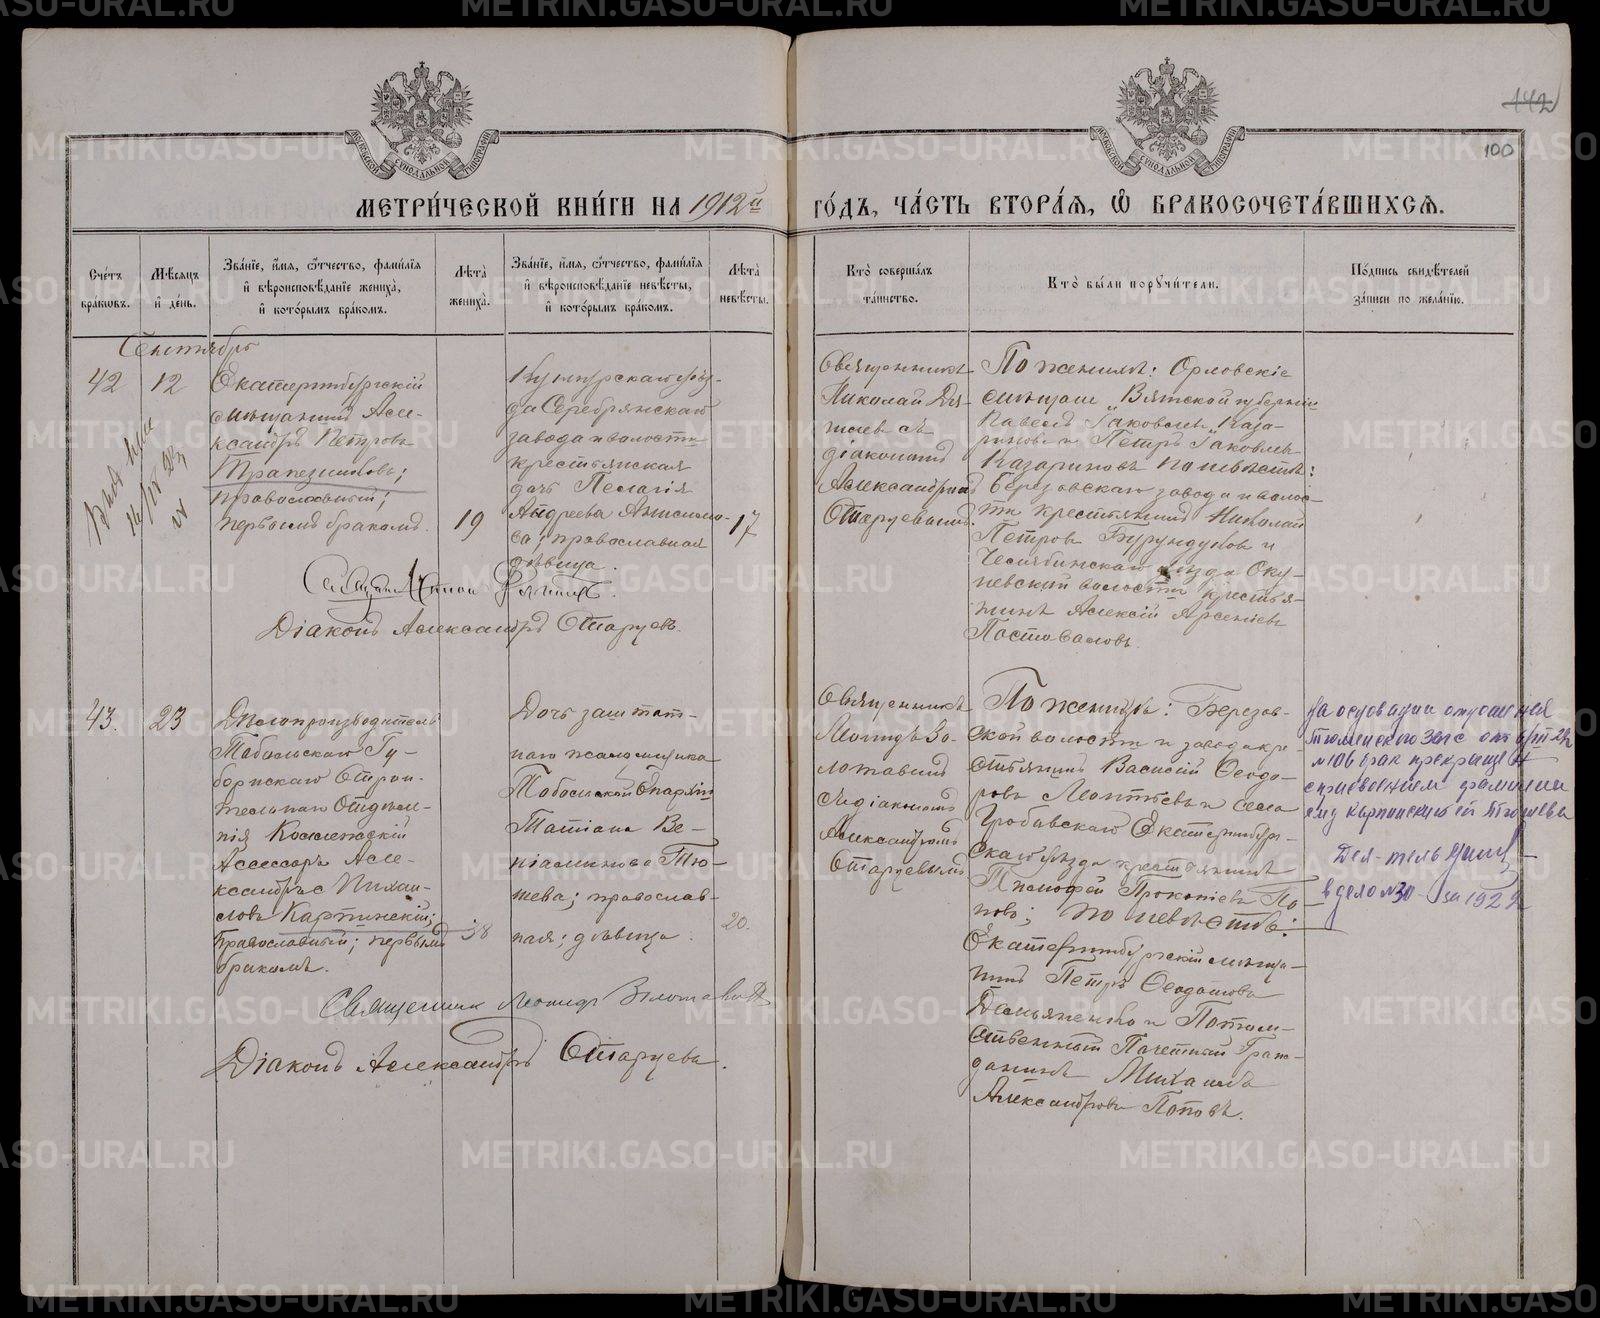 142
100
МЕТРИ́ЧЕСКОЙ КНИ́ГИ НА 1912й ГО́ДЪ, ЧА́СТЬ ВТОРА́Я, Ѿ БРАКОСОЧЕТА́ВШИХСЯ.
Сче́тъ бра́ковъ.
Мѣ́сяцъ и де́нь.
Зва́ніе, и́мя, ѻ́тчество, фами́лія
и вѣроисповѣ́даніе жениха̀,
и кото́рымъ бра́комъ.
Лѣта̀ жениха̀.
Зва́ніе, и́мя, ѻ́тчество, фами́лія
и вѣроисповѣ́даніе невѣ́сты,
и кото́рымъ бра́комъ.
Лѣта̀ невѣ́сты.
Кто̀ соверша́лъ
та́инство.
Кто̀ бы́ли поручи́тели.
По́дпись свидѣ́телей
за́писи по жела́нію.
Сентябрь
42
12
Екатеринбургскій
мѣщанинъ Але-
ксандръ Петровъ
Трапезниковъ;
православный;
первымъ бракомъ.
19
Кунгурскаго уѣз-
да Серебрянскаго
завода и волости
крестьянская
дочь Пелагія
Андреева Анисимо-
ва; православная
дѣвица.
17
Діаконъ Александръ Старцевъ.
Священникъ
Николай
діакономъ
Александромъ
Старцевымъ.
По женихѣ: Орловскіе
мѣщане Вятской губерніи
Павелъ Іаковлевъ Каза-
риновъ и Петръ Іаковлевъ
Казариновъ по невѣстѣ:
Березовскаго завода и волос-
ти крестьянинъ Николай
Петровъ Бурундуковъ и
Челябинскаго уѣзда Оку-
невской волости крестья-
нинъ Алексій Арсеніевъ
Постоваловъ.
43.
23
Дѣлопроизводитель
Тобольскаго Гу-
бернскаго Строи-
тельнаго Отдѣле-
нія Коллежскій
Асессоръ Але-
ксандръ Михаи-
ловъ Карпинскій;
православный; первымъ
бракомъ.
38
Дочь заштат-
наго псаломщика
Тобольской Епархіи
Татіана Ве-
ніаминова Тю-
шева; православ-
ная; дѣвица.
20.
Священник Леонид Золотавин
Діаконъ Александръ Старцевъ.
Священникъ
Леонидъ Зо-
лотавинъ
съ діакономъ
Александромъ
Старцевымъ
По женихѣ: Березов-
ской волости и завода кре-
стьянинъ Василій Ѳеодо-
ровъ Леонтьевъ и села
Гробовскаго Екатеринбург-
скаго уѣзда крестьянинъ
Тимофей Прокопіевъ По-
повъ; по невѣстѣ:
Екатеринбургскій мѣща-
нинъ Петръ Ѳеодотовъ
Демьяненко и Потом-
ственный Почетный Граж-
данинъ Михаилъ
Александровъ Поповъ.
На основании отношения
Тюменского Загс от
№ 106 брак прекращен
с присвоением фамилии
ему Карпинский ей Тюшева
в деле № 30 за 1922